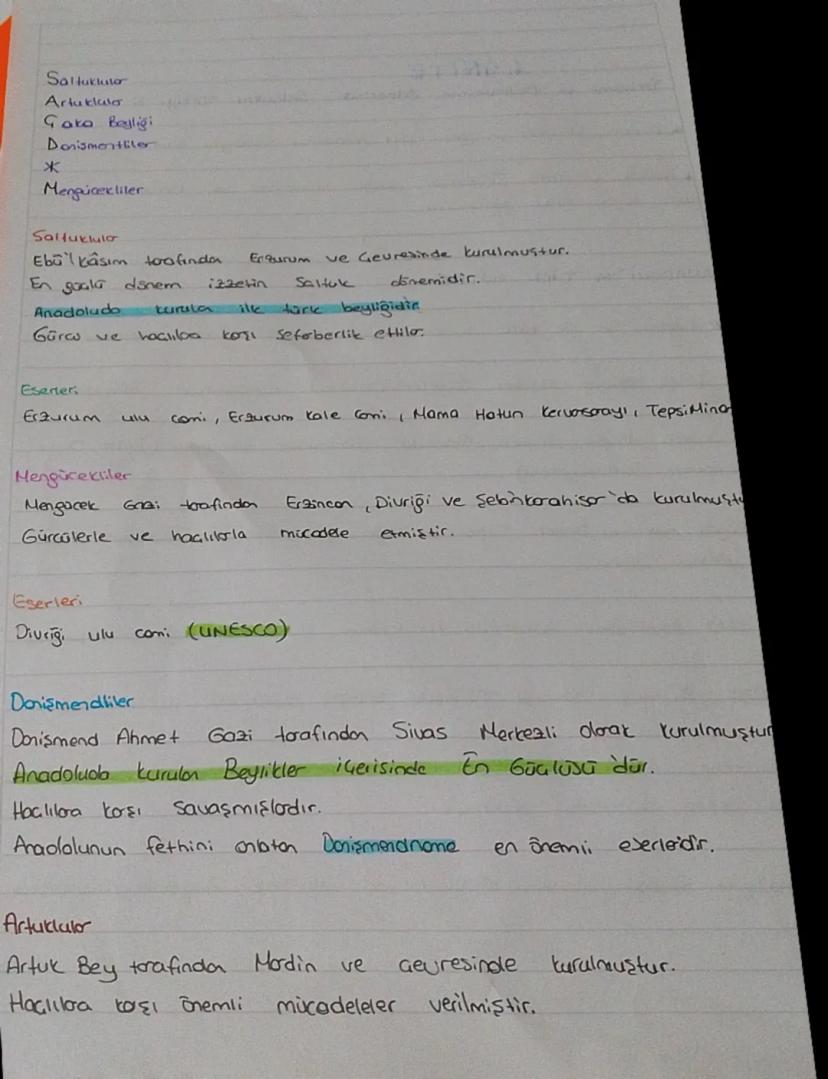 Saltuklular
Artuklular
Çaka Beyliği
Danişmentliler
*
Mengücekliler
Saltuklular
Ebû'l kâsım tarafından Erzurum ve Çevresinde kurulmuştur.
En güçlü dönem izzetin Saltuk dönemidir.
Anadoluda kurulan ilk türk beyliğidir
Gürcü ve haçlılara karşı seferberlik ettiler.
Eserleri
Erzurum ulu cami, Erzurum kale cami, Mama Hatun kervansarayı, TepsiMinar
Mengücekliler
Mengücek Gazi tarafından Erzincan, Divriği ve Şebinkarahisar'da kurulmuştu
Gürcülerle ve haçlılarla mücadele etmiştir.
Eserleri
Divriği ulu cami (UNESCO)
Danişmendliler
Danişmend Ahmet Gazi tarafından Sivas Merkezli olarak kurulmuştur
Anadoluda kurulan Beylikler içerisinde En Güçlüsü'dür.
Haçlılara karşı savaşmışlardır.
Anadolunun fethini anlatan Danişmendname en önemli eserleridir.
Artuklular
Artuk Bey tarafından Mardin ve çevresinde kurulmuştur.
Haçlılara karşı önemli mücadeleler verilmiştir.